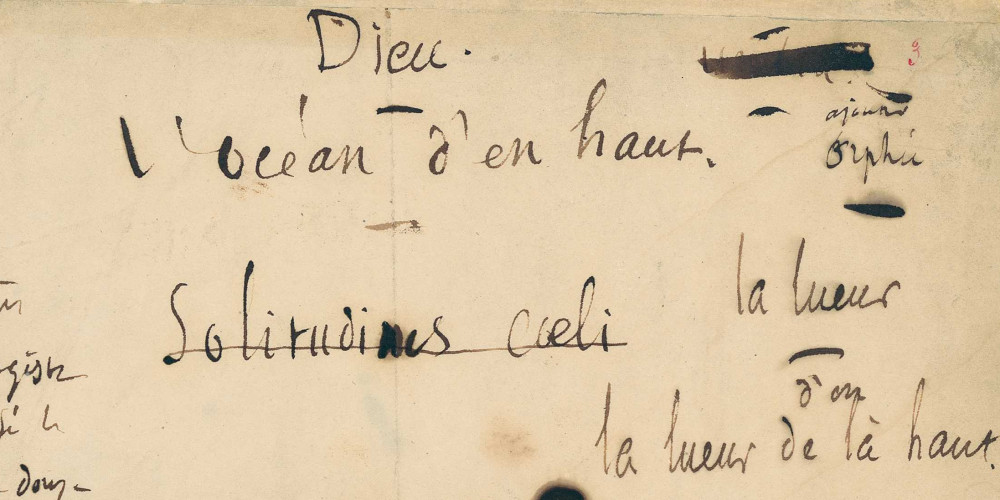 Dieu.
L'océan d'en haut.
ajouter
Orphée
Solitudines cœli
la lueur
d'en
la lueur de là haut.